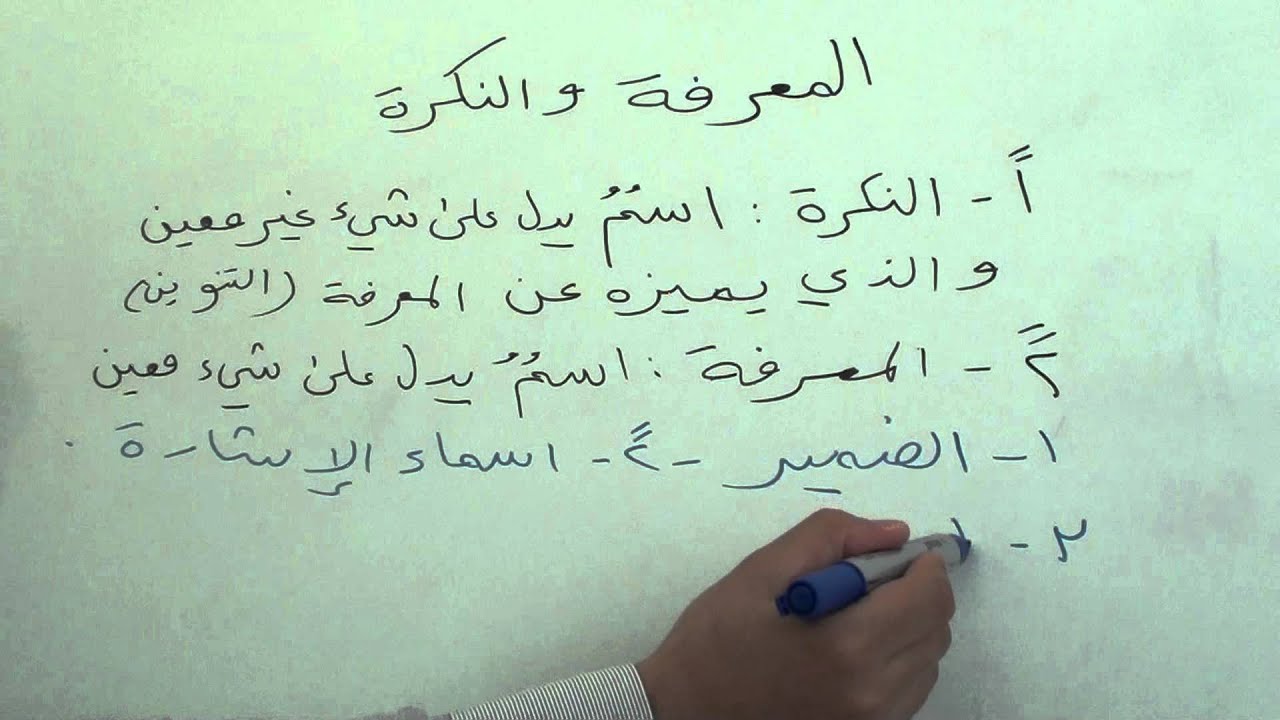 المعرفة والنكرة
أً - النكرة : اسمٌ يدل على شيء غير معين
والذي يميزه عن المعرفة (التنوين)
٢ً - المعرفة : اسمٌ يدل على شيء معين
١ - الضمير - ٢ً - اسماء الإشارة .
٣ - ا